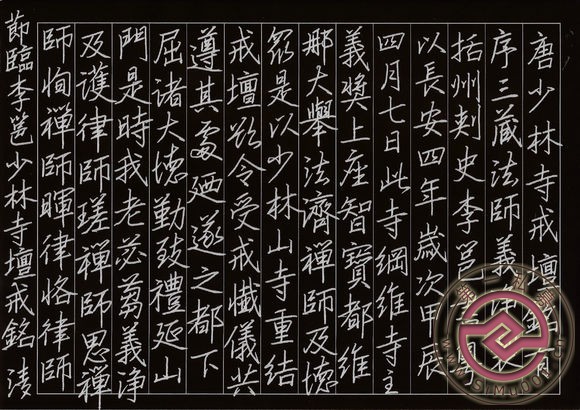 唐少林寺戒壇銘有
序三藏法師義淨
括州刺史李邕
以長安四年歲次甲辰
四月七日此寺綱維寺主
義獎上座智寶都維
那大舉法濟禪師及德
眾是以少林山寺重結
戒壇欲令受戒懺儀共
遵其處廼遂之都下
屈諸大德勤致禮延山
門是時我老苾芻義淨
及護律師瑳禪師思禪
師恂禪師暉律恪律師
節臨李邕少林寺壇戒銘